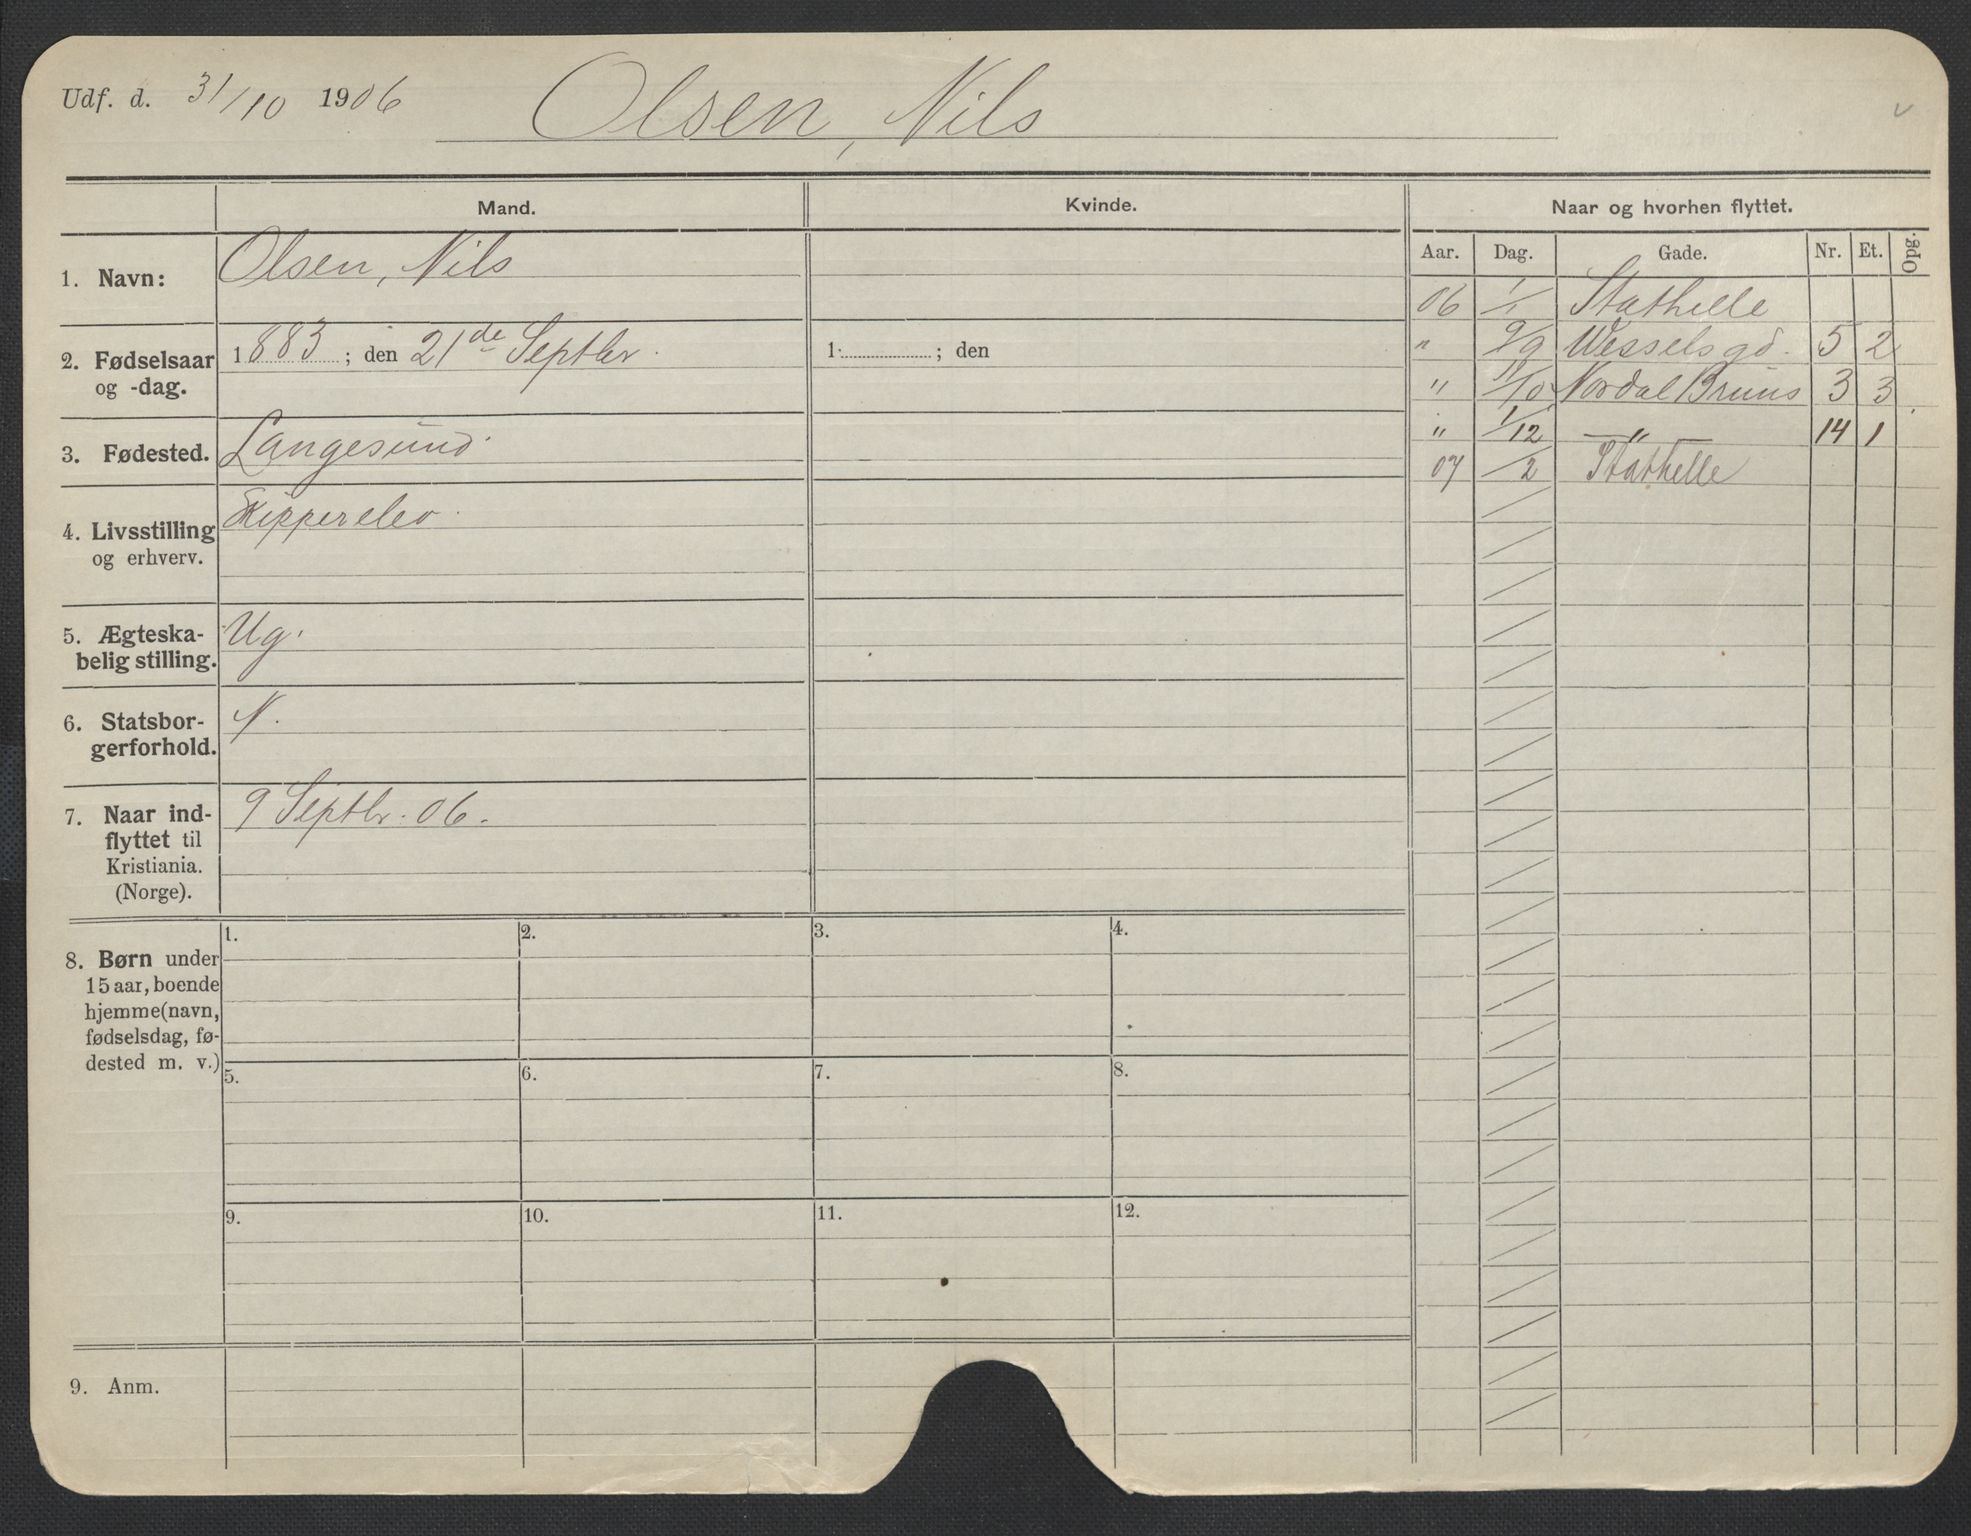 Udf. d. 31/10 1906 Olsen, Nils
Mand. Kvinde. Naar og hvorhen flyttet.
Aar. Dag. Gade. Nr. Et. Opg.
1. Navn: Olsen, Nils
2. Fødselsaar og -dag. 1883; den 21de Septbr. 1 ; den
3. Fødested. Langesund.
4. Livsstilling og erhverv. Skipperelev.
5. Ægteska-
belig stilling. Ug.
6. Statsbor-
gerforhold. N.
7. Naar ind-
flyttet til
Kristiania.
(Norge). 9 Septbr. 06.
06 1/1 Stathelle
" 9/9 Wesselsgd. 5 2
" 11/10 Nordal Bruns 3 3
" 1/12 — " — 14 1
07 /2 Stathelle
8. Børn under
15 aar, boende
hjemme (navn,
fødselsdag, fø-
dested m. v.)
1. 2. 3. 4.
5. 6. 7. 8.
9. 10. 11. 12.
9. Anm.